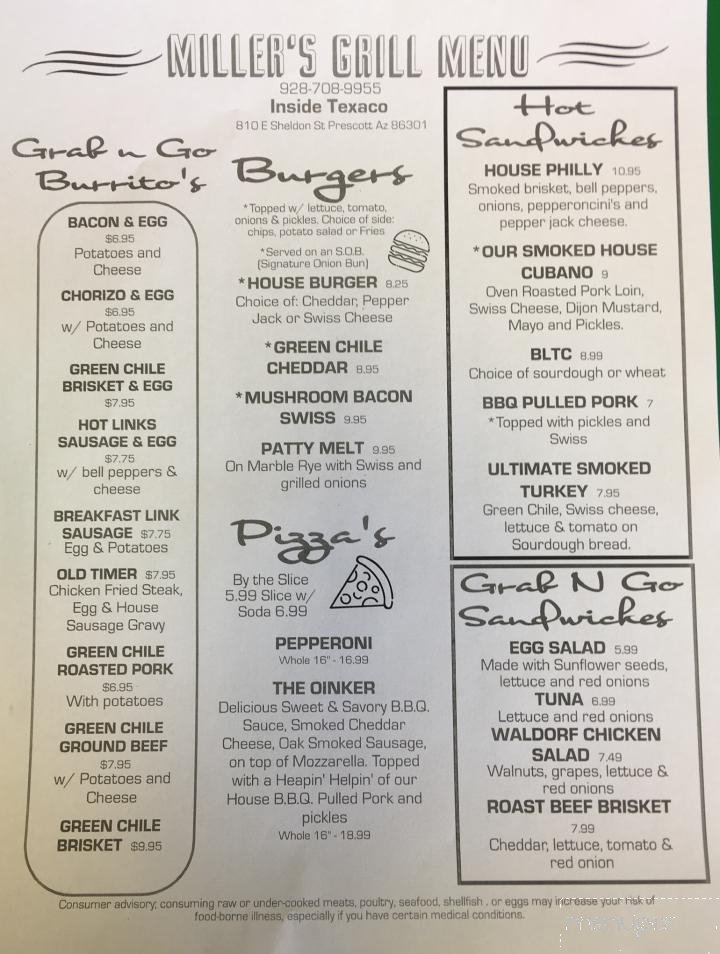 MILLER'S GRILL MENU
928-708-9955
Inside Texaco
810 E Sheldon St Prescott Az 86301
Grab n Go
Burrito's
BACON & EGG
$6.95
Potatoes and
Cheese
CHORIZO & EGG
$6.95
w/ Potatoes and
Cheese
GREEN CHILE
BRISKET & EGG
$7.95
HOT LINKS
SAUSAGE & EGG
$7.75
w/ bell peppers &
cheese
BREAKFAST LINK
SAUSAGE $7.75
Egg & Potatoes
OLD TIMER $7.95
Chicken Fried Steak,
Egg & House
Sausage Gravy
GREEN CHILE
ROASTED PORK
$6.95
With potatoes
GREEN CHILE
GROUND BEEF
$7.95
w/ Potatoes and
Cheese
GREEN CHILE
BRISKET $9.95
Burgers
*Topped w/ lettuce, tomato,
onions & pickles. Choice of side:
chips, potato salad or Fries
*Served on an S.O.B.
(Signature Onion Bun)
*HOUSE BURGER 8.25
Choice of: Cheddar, Pepper
Jack or Swiss Cheese
*GREEN CHILE
CHEDDAR 8.95
*MUSHROOM BACON
SWISS 9.95
PATTY MELT 9.95
On Marble Rye with Swiss and
grilled onions
Pizza's
By the Slice
5.99 Slice w/
Soda 6.99
PEPPERONI
Whole 16" - 16.99
THE OINKER
Delicious Sweet & Savory B.B.Q.
Sauce, Smoked Cheddar
Cheese, Oak Smoked Sausage,
on top of Mozzarella. Topped
with a Heapin' Helpin' of our
House B.B.Q. Pulled Pork and
pickles
Whole 16" - 18.99
Hot
Sandwiches
HOUSE PHILLY 10.95
Smoked brisket, bell peppers,
onions, pepperoncini's and
pepper jack cheese.
*OUR SMOKED HOUSE
CUBANO 9
Oven Roasted Pork Loin,
Swiss Cheese, Dijon Mustard,
Mayo and Pickles.
BLTC 8.99
Choice of sourdough or wheat
BBQ PULLED PORK 7
*Topped with pickles and
Swiss
ULTIMATE SMOKED
TURKEY 7.95
Green Chile, Swiss cheese,
lettuce & tomato on
Sourdough bread.
Grab N Go
Sandwiches
EGG SALAD 5.99
Made with Sunflower seeds,
lettuce and red onions
TUNA 6.99
Lettuce and red onions
WALDORF CHICKEN
SALAD 7.49
Walnuts, grapes, lettuce &
red onions
ROAST BEEF BRISKET
7.99
Cheddar, lettuce, tomato &
red onion
Consumer advisory; consuming raw or under-cooked meats, poultry, seafood, shellfish , or eggs may increase your risk of
food-borne illness, especially if you have certain medical conditions.